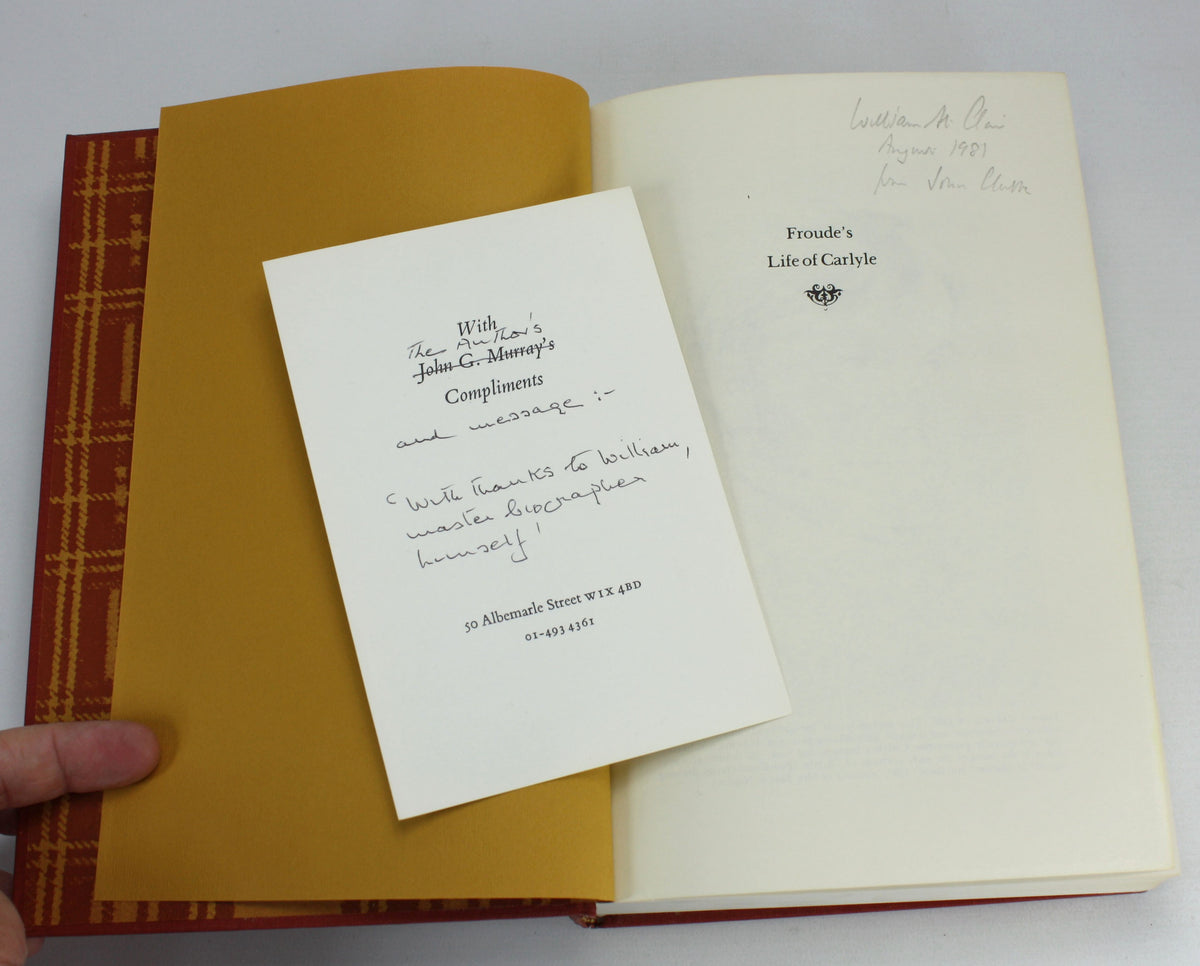 With
The Author's
John G. Murray's
Compliments
and message :-
'With thanks to William,
master biographer
himself'
50 Albemarle Street W1X 4BD
01-493 4361
William St. Clair
August 1981
from John Clubbe
Froude's
Life of Carlyle